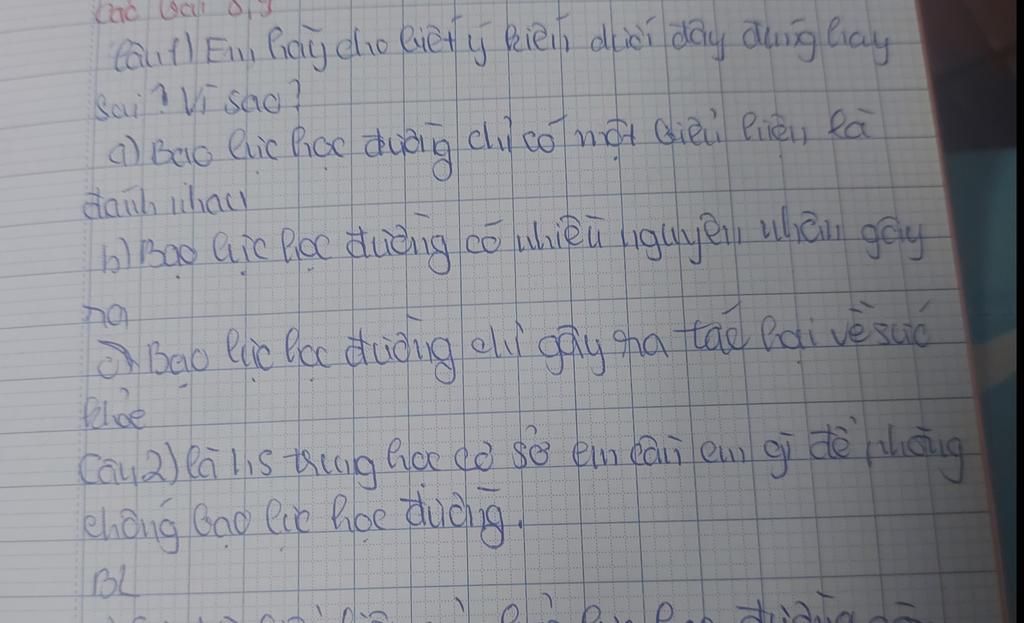 các bài
Câu 1) Em hãy cho biết ý kiến dưới đây đúng hay
sai? Vì sao?
a) Bạo lực học đường chỉ có một biểu hiện là
đánh nhau
b) Bạo lực học đường có nhiều nguyên nhân gây
ra
c) Bạo lực học đường chỉ gây ra tác hại về sức
khỏe
Câu 2) là hs trung học cơ sở em cần em gì để phòng
chống bạo lực học đường.
BL